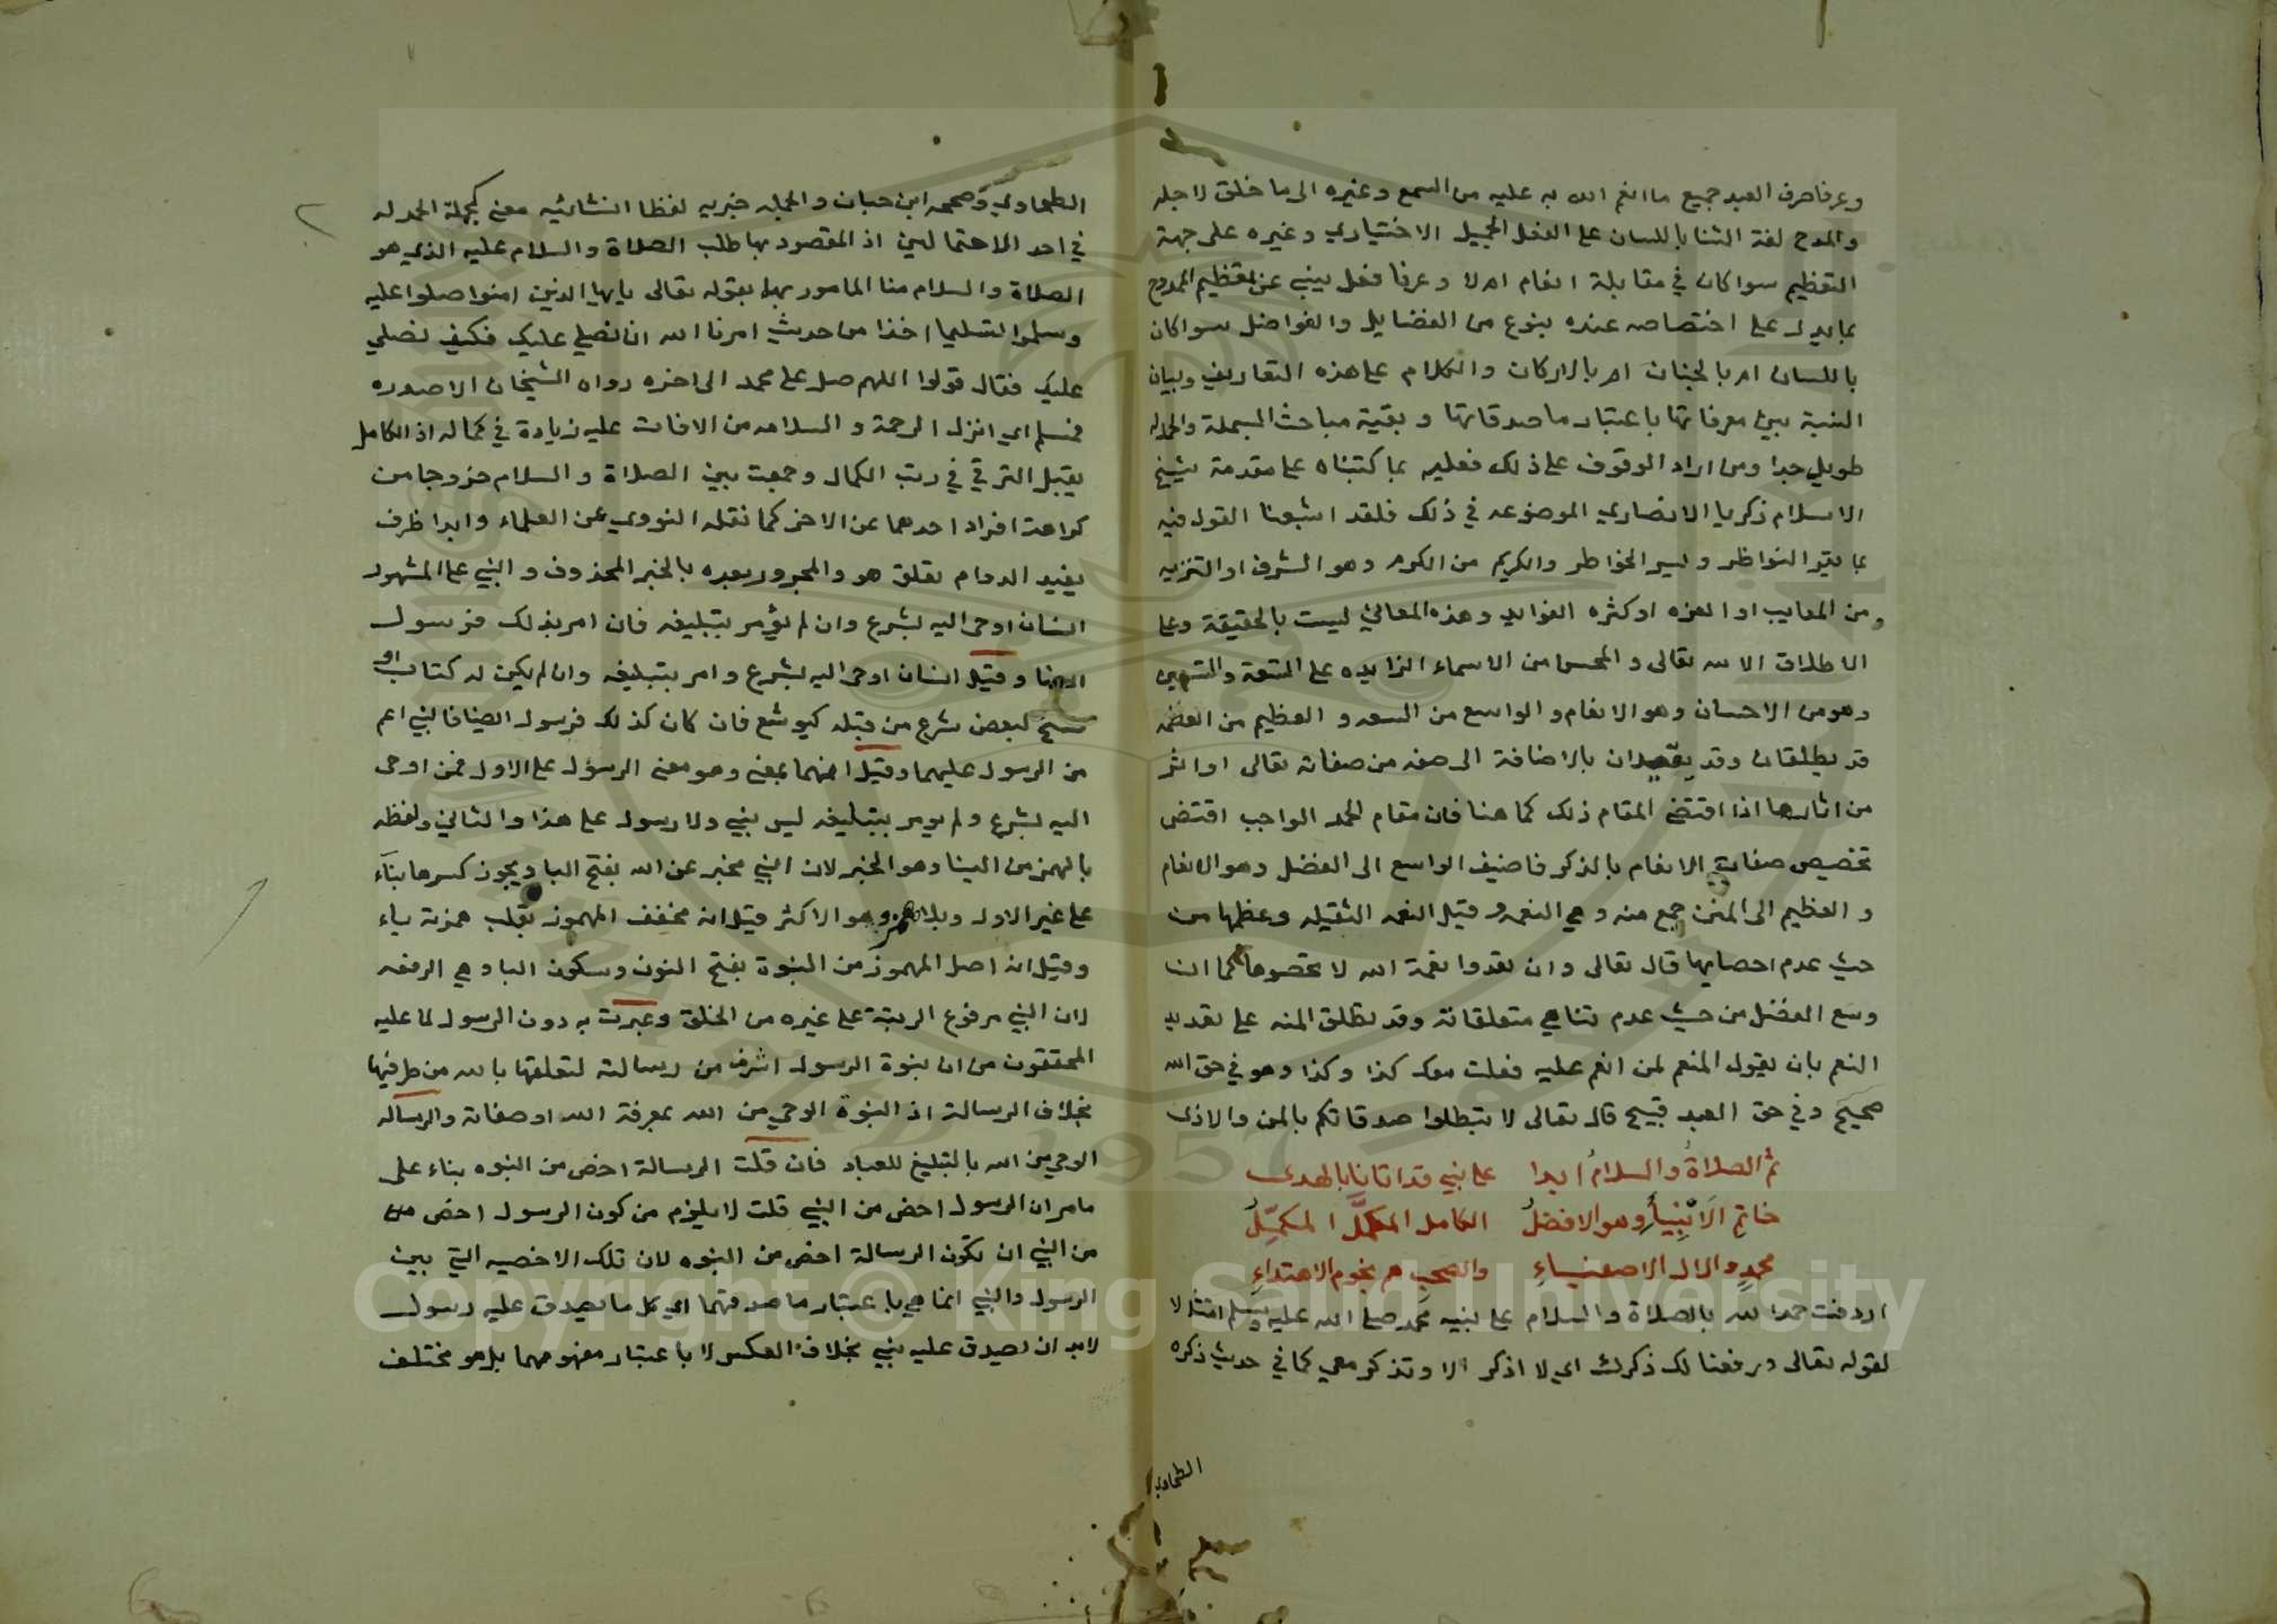 وعرفا صرف العبد جميع ما انعم الله به عليه من السمع وغيره الى ما خلق لاجله
والمدح لغة الثنا باللسان على الفعل الجميل الاختياري وغيره على جهة
التعظيم سوا كان في مقابلة انعام ام لا وعرفا فعل ينبي عن تعظيم الممدوح
بما يدل على اختصاصه عنده بنوع من الفضايل والفواضل سوا كان
باللسان ام بالجنان ام بالاركان والكلام على هذه التعاريف وبيان
النسبة بين معرفاتها باعتبار ماصدقاتها وبقية مباحث البسملة والحمدله
طويل جدا ومن اراد الوقوف على ذلك فعليه بما كتبناه على مقدمة شيخ
الاسلام زكريا الانصاري الموضوعه في ذلك فلقد اشبعنا القول فيه
بما يقر النواظر ويسر الخواطر والكريم من الكرم وهو الشرف او التنزيه
من المعايب او العزه او كثره الفوايد وهذه المعاني ليست بالحقيقة وعلى
الاطلاق الا لله تعالى والمحسن من الاسماء الزايده على التسعة والتسعين
وهو من الاحسان وهو الانعام والواسع من السعه والعظيم من العظمه
قد يطلقان وقد يقيدان بالاضافة الى صفه من صفاته تعالى او اثر
من اثارها اذا اقتضى المقام ذلك كما هنا فان مقام الحمد الواجب اقتضى
تخصيص صفات الانعام بالذكر فاضيف الواسع الى الفضل وهو الانعام
والعظيم الى المنن جمع منه وهي النعمه وقيل النعمه الثقيله وعظمها من
حيث عدم احصايها قال تعالى وان تعدوا نعمة الله لا تحصوها كما ان
وسع الفضل من حيث عدم تناهي متعلقاته وقد تطلق المنه على تعديد
النعم بان يقول المنعم لمن انعم عليه فعلت معك كذا وكذا وهو في حق الله
صحيح وفي حق العبد قبيح قال تعالى لا تبطلوا صدقاتكم بالمن والاذى
ثم الصلاةُ والسلامُ ابدا على نبي قد اتانا بالهدى
خاتم الانبياء وهو الافضلُ الكامل المكمَّل المكمِّلُ
محمدٍ والال الاصفياءِ والصحب هم نجوم الاهتداءِ
اردفت حمد الله بالصلاة والسلام على نبيه محمد صلى الله عليه وسلم امتثالا
لقوله تعالى ورفعنا لك ذكرك اي لا اذكر الا وتذكر معي كما في حديث ذكره
الطحاوي
الطحاوي وصححه ابن حبان والجمله خبريه لفظا انشائيه معنى كجملة الحمد له
في احد الاحتمالين اذ المقصود بها طلب الصلاة والسلام عليه الذي هو
الصلاة والسلام منا المامور بها بقوله تعالى يايها الذين امنوا صلوا عليه
وسلموا تسليما اخذا من حديث امرنا الله ان نصلي عليك فكيف نصلي
عليك فقال قولوا اللهم صل على محمد الى اخره رواه الشيخان الا صدره
فمسلم اي انزل الرحمة والسلامه من الافات عليه زيادة في كماله اذ الكامل
يقبل الترقي في رتب الكمال وجمعت بين الصلاة والسلام خروجا من
كراهة افراد احدهما عن الاخر كما نقله النووي عن العلماء وابدا ظرف
يفيد الدوام تعلق هو والمجرور بعده بالخبر المحذوف والنبي على المشهور
انسان اوحى اليه بشرع وان لم يؤمر بتبليغه فان امر بذلك فرسول
ايضا وقيل انسان اوحى اليه بشرع وامر بتبليغه وان لم يكن له كتاب او
نسخ لبعض شرع من قبله كيوشع فان كان كذلك فرسول ايضا فالنبي اعم
من الرسول عليهما وقيل انهما بمعنى وهو معنى الرسول على الاول فمن اوحى
اليه بشرع ولم يومر بتبليغه ليس بنبي ولا رسول على هذا والثاني ولفظه
بالهمز من النبا وهو الخبر لان النبي مخبر عن الله بفتح البا ويجوز كسرها بناء
على غير الاول وبلا همز وهو الاكثر قيل انه مخفف المهموز بقلب همزته ياء
وقيل انه اصل المهموز من النبوة بفتح النون وسكون البا وهي الرفعه
لان النبي مرفوع الرتبة على غيره من الخلق وعبرت به دون الرسول لما عليه
المحققون من ان نبوة الرسول اشرف من رسالته لتعلقها بالله من طرفيها
بخلاف الرسالة اذ النبوة الوحي من الله بمعرفة الله او صفاته والرسالة
الوحي من الله بالتبليغ للعباد فان قلت الرسالة اخص من النبوه بناء على
مامر ان الرسول اخص من النبي قلت لا يلزم من كون الرسول اخص من
من النبي ان تكون الرسالة اخص من النبوه لان تلك الاخصيه التي بين
الرسول والنبي انما هي باعتبار ماصدقهما اي كل ما يصدق عليه رسول
لابد ان يصدق عليه نبي بخلاف العكس لا باعتبار مفهومهما بل هو مختلف
Copyright © King Saud University
1957